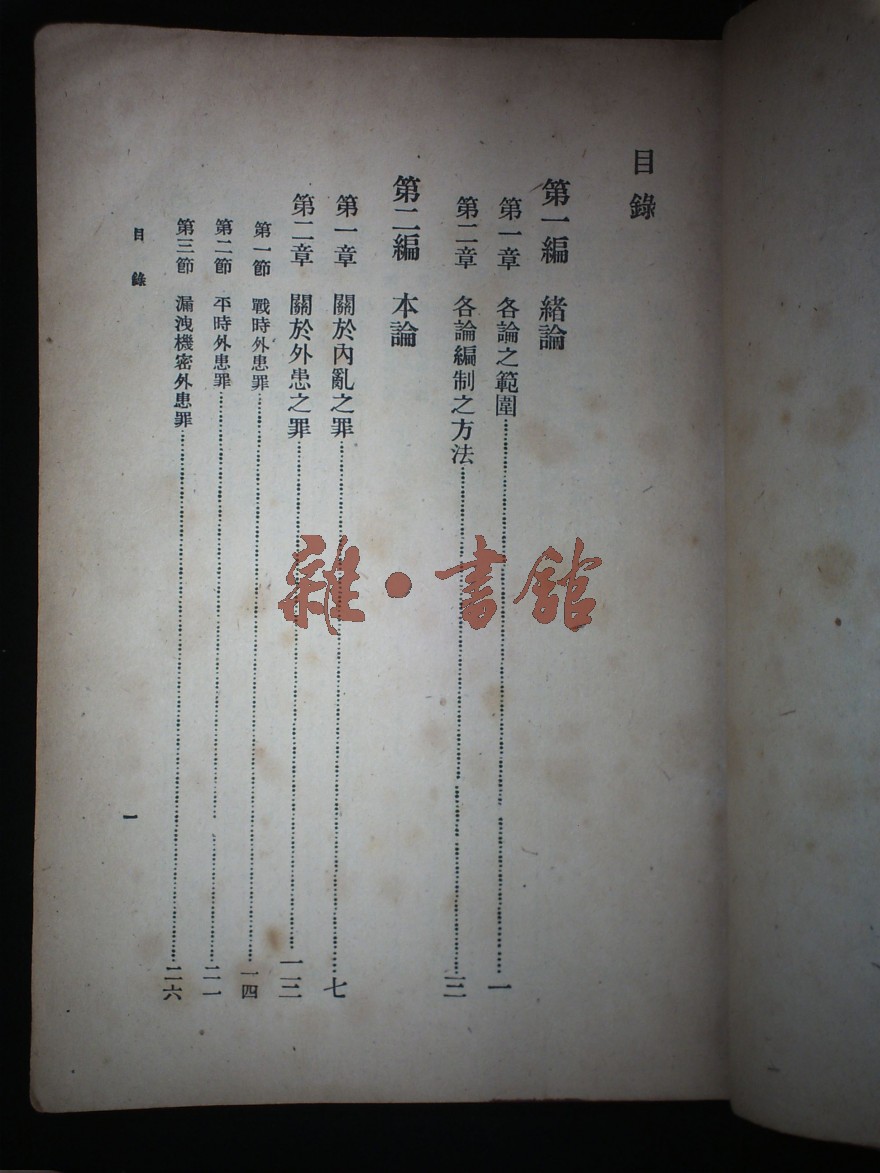 目錄
第一編 緒論
第一章 各論之範圍……一
第二章 各論編制之方法……三
第二編 本論
第一章 關於內亂之罪……七
第二章 關於外患之罪……一三
第一節 戰時外患罪……一四
第二節 平時外患罪……二一
第三節 漏洩機密外患罪……二六
目錄
一
雜·書館